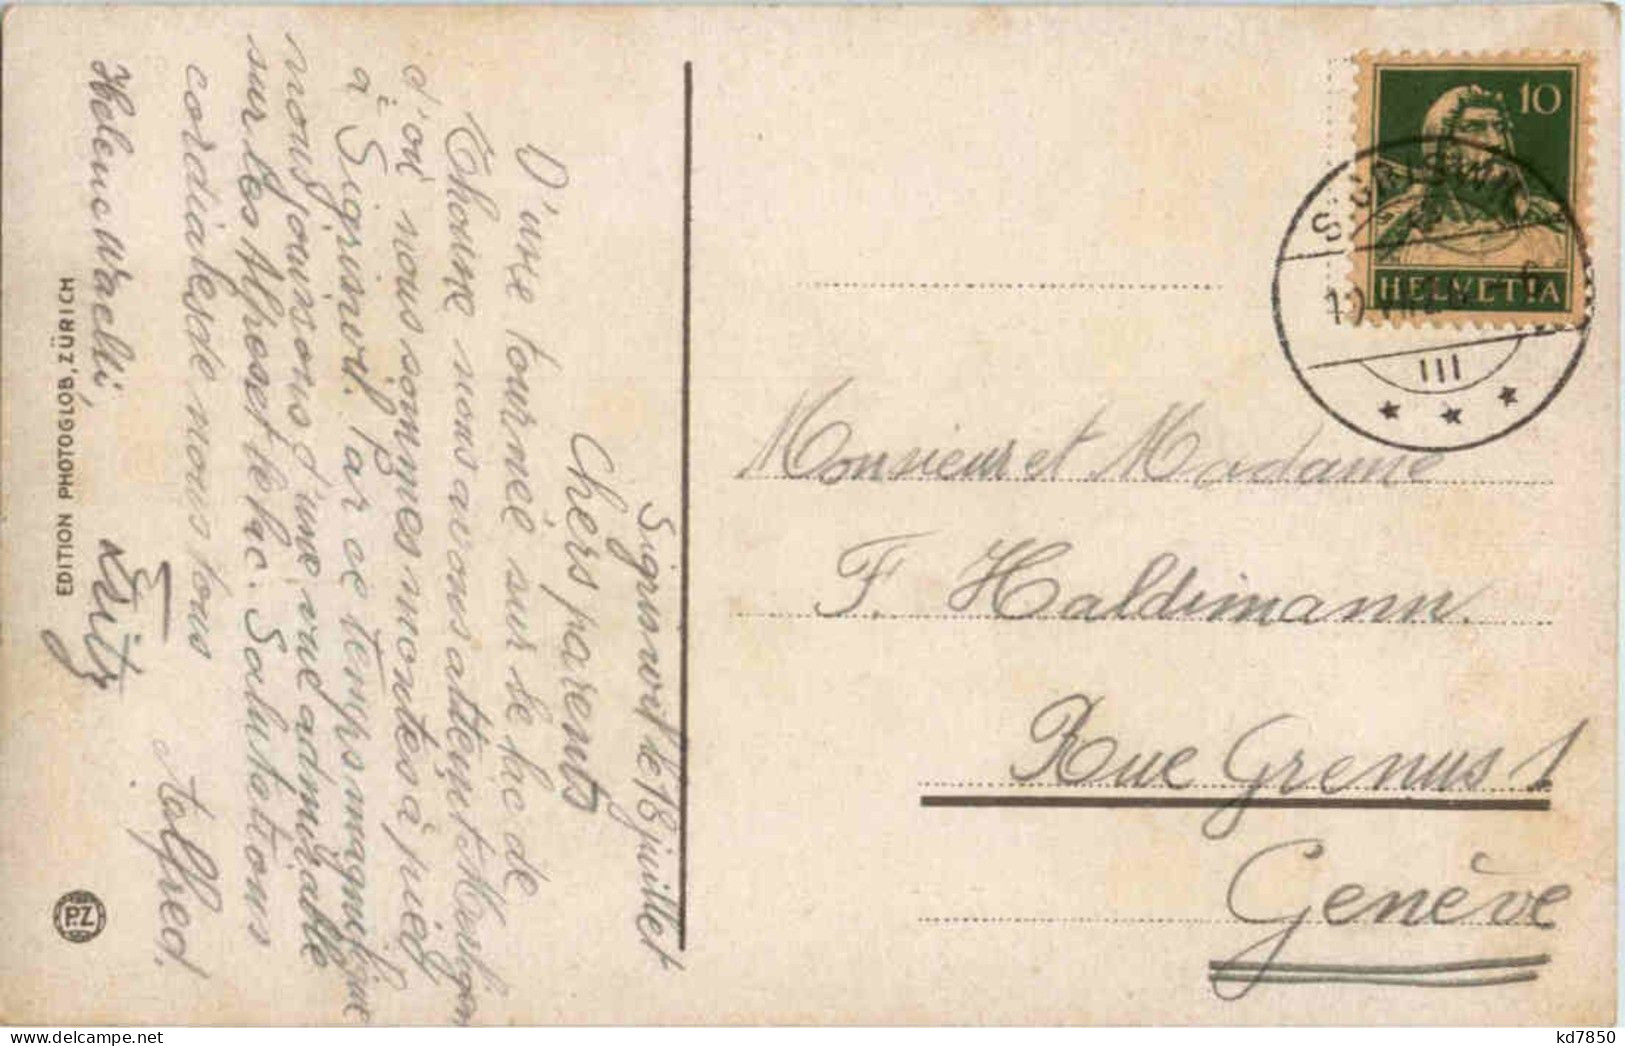 Sigriswil le 18 juillet
Chèrs parents
D'une tournée sur le lac de
Thoune nous avons atteint Merligen
d'où nous sommes montés à pied
à Sigriswil. Par ce temps magnifique
nous jouissons d'une vue admirable
sur les Alpes et le lac. Salutations
cordiales de nous tous
Alfred.
Helene
Fritz
EDITION PHOTOGLOB, ZÜRICH
P.Z
10
HELVETIA
III
Monsieur et Madame
F. Haldimann.
Rue Grenus 1
Genève
delcampe.net
kd7850